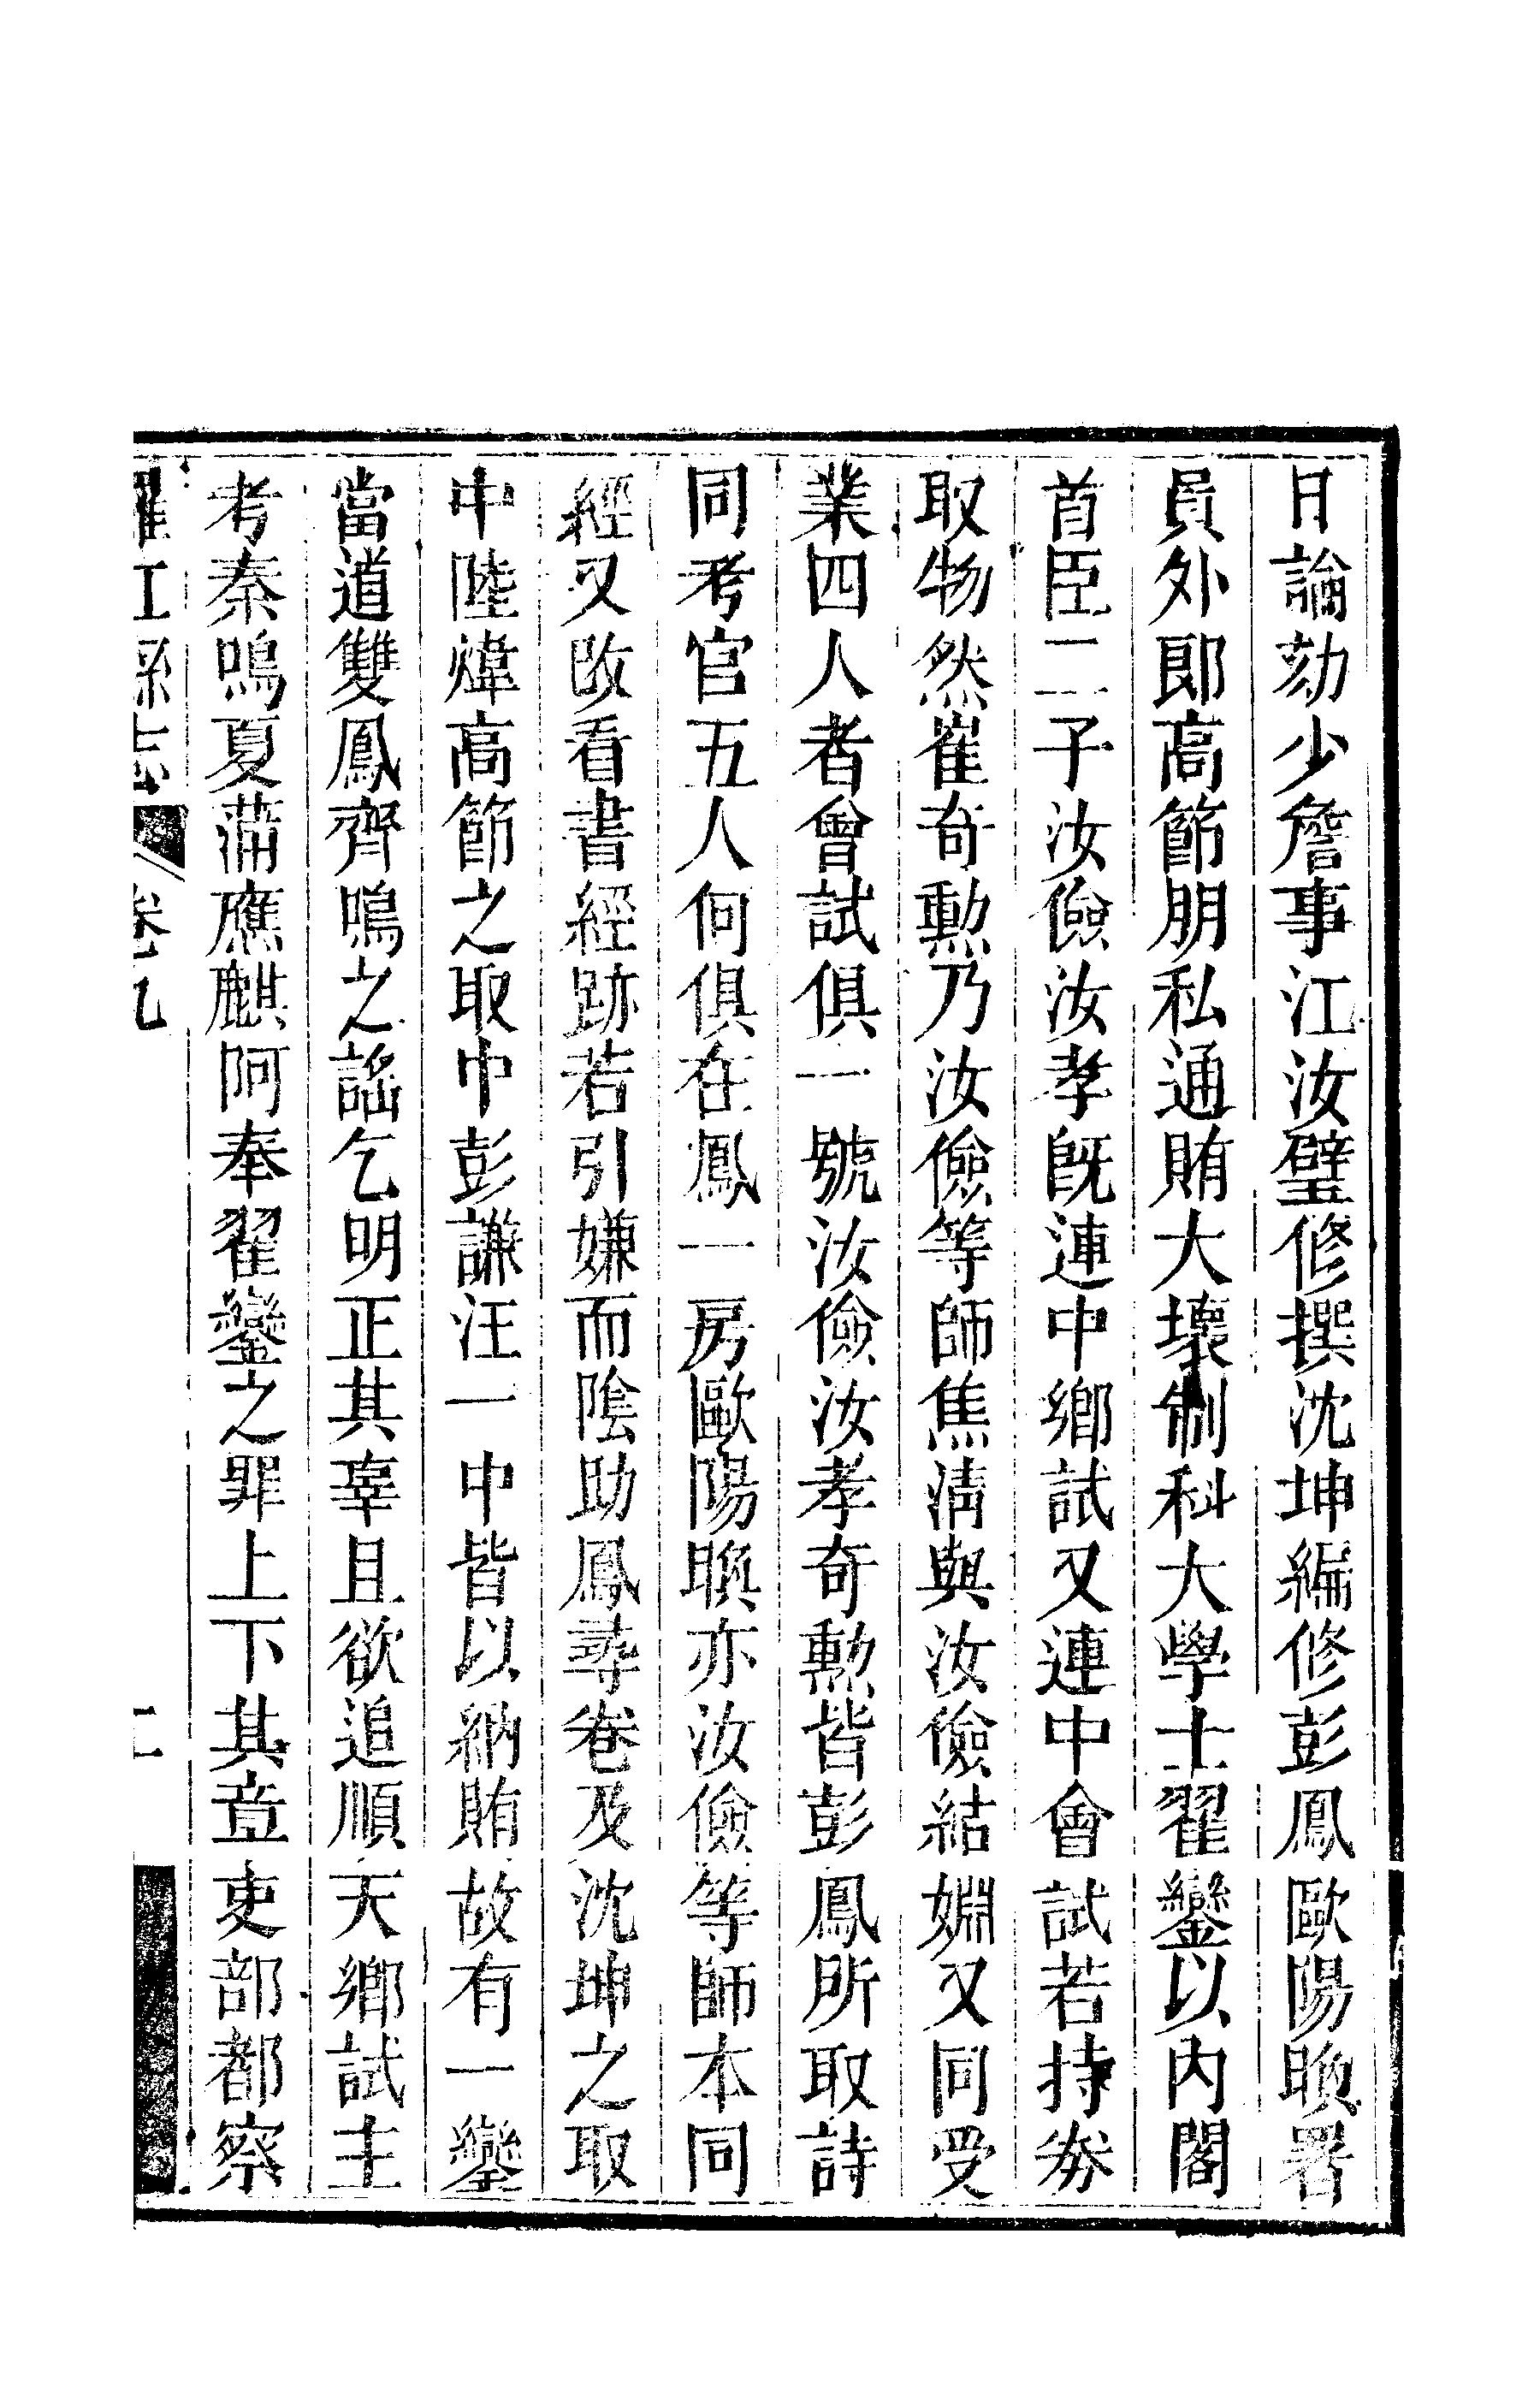 日論劾少詹事江汝璧修撰沈坤編修彭鳳歐陽㬇署
員外郎高節朋私通賄大壞制科大學士翟鑾以內閣
首臣二子汝儉汝孝旣連中鄉試又連中會試若持劵
取物然崔奇勲乃汝儉等師焦淸與汝儉結婣又同受
業四人者會試俱一號汝儉汝孝奇勲皆彭鳳所取詩
同考官五人何俱在鳳一房歐陽㬇亦汝儉等師本同
經又改看書經跡若引嫌而陰助鳳尋卷及沈坤之取
中陸煒高節之取中彭謙汪一中皆以納賄故有一鑾
當道雙鳳齊鳴之謠乞明正其辜且欲追順天鄉試主
考秦鳴夏浦應麒阿奉翟鑾之罪上下其章吏部都察
羅江縣志 卷九 二